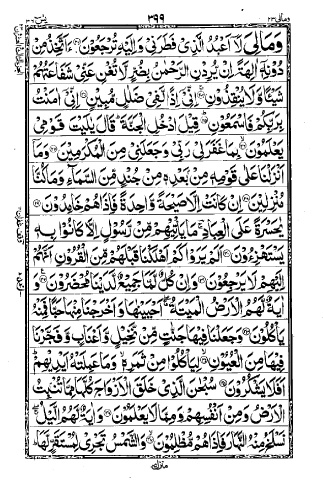 ومالی ٢٣ ٣٩٩ یٰسٓ ٣٦
وَمَالِىَ لَاۤ اَعۡبُدُ الَّذِىۡ فَطَرَنِىۡ وَاِلَيۡهِ تُرۡجَعُوۡنَ ءَاَتَّخِذُ مِنۡ
دُوۡنِهٖۤ اٰلِهَةً اِنۡ يُّرِدۡنِ الرَّحۡمٰنُ بِضُرٍّ لَّا تُغۡنِ عَنِّىۡ شَفَاعَتُهُمۡ
شَيۡـًٔا وَّلَا يُنۡقِذُوۡنِ اِنِّىۡۤ اِذًا لَّفِىۡ ضَلٰلٍ مُّبِيۡنٍ اِنِّىۡۤ اٰمَنۡتُ
بِرَبِّكُمۡ فَاسۡمَعُوۡنِ قِيۡلَ ادۡخُلِ الۡجَنَّةَ قَالَ يٰلَيۡتَ قَوۡمِىۡ
يَعۡلَمُوۡنَ بِمَا غَفَرَلِىۡ رَبِّىۡ وَجَعَلَنِىۡ مِنَ الۡمُكۡرَمِيۡنَ وَمَاۤ
اَنۡزَلۡنَا عَلٰى قَوۡمِهٖ مِنۡۢ بَعۡدِهٖ مِنۡ جُنۡدٍ مِّنَ السَّمَآءِ وَمَا كُنَّا
مُنۡزِلِيۡنَ اِنۡ كَانَتۡ اِلَّا صَيۡحَةً وَّاحِدَةً فَاِذَا هُمۡ خٰمِدُوۡنَ
يٰحَسۡرَةً عَلَى الۡعِبَادِ مَا يَاۡتِيۡهِمۡ مِّنۡ رَّسُوۡلٍ اِلَّا كَانُوۡا بِهٖ
يَسۡتَهۡزِءُوۡنَ اَلَمۡ يَرَوۡا كَمۡ اَهۡلَكۡنَا قَبۡلَهُمۡ مِّنَ الۡقُرُوۡنِ اَنَّهُمۡ
اِلَيۡهِمۡ لَا يَرۡجِعُوۡنَ وَاِنۡ كُلٌّ لَّمَّا جَمِيۡعٌ لَّدَيۡنَا مُحۡضَرُوۡنَ وَ
اٰيَةٌ لَّهُمُ الۡاَرۡضُ الۡمَيۡتَةُ اَحۡيَيۡنٰهَا وَاَخۡرَجۡنَا مِنۡهَا حَبًّا فَمِنۡهُ
يَاۡكُلُوۡنَ وَجَعَلۡنَا فِيۡهَا جَنّٰتٍ مِّنۡ نَّخِيۡلٍ وَّاَعۡنَابٍ وَّفَجَّرۡنَا
فِيۡهَا مِنَ الۡعُيُوۡنِ لِيَاۡكُلُوۡا مِنۡ ثَمَرِهٖ وَمَا عَمِلَتۡهُ اَيۡدِيۡهِمۡ
اَفَلَا يَشۡكُرُوۡنَ سُبۡحٰنَ الَّذِىۡ خَلَقَ الۡاَزۡوَاجَ كُلَّهَا مِمَّا تُنۡۢبِتُ
الۡاَرۡضُ وَمِنۡ اَنۡفُسِهِمۡ وَمِمَّا لَا يَعۡلَمُوۡنَ وَاٰيَةٌ لَّهُمُ الَّيۡلُ
نَسۡلَخُ مِنۡهُ النَّهَارَ فَاِذَا هُمۡ مُّظۡلِمُوۡنَ وَالشَّمۡسُ تَجۡرِىۡ لِمُسۡتَقَرٍّ لَّهَا